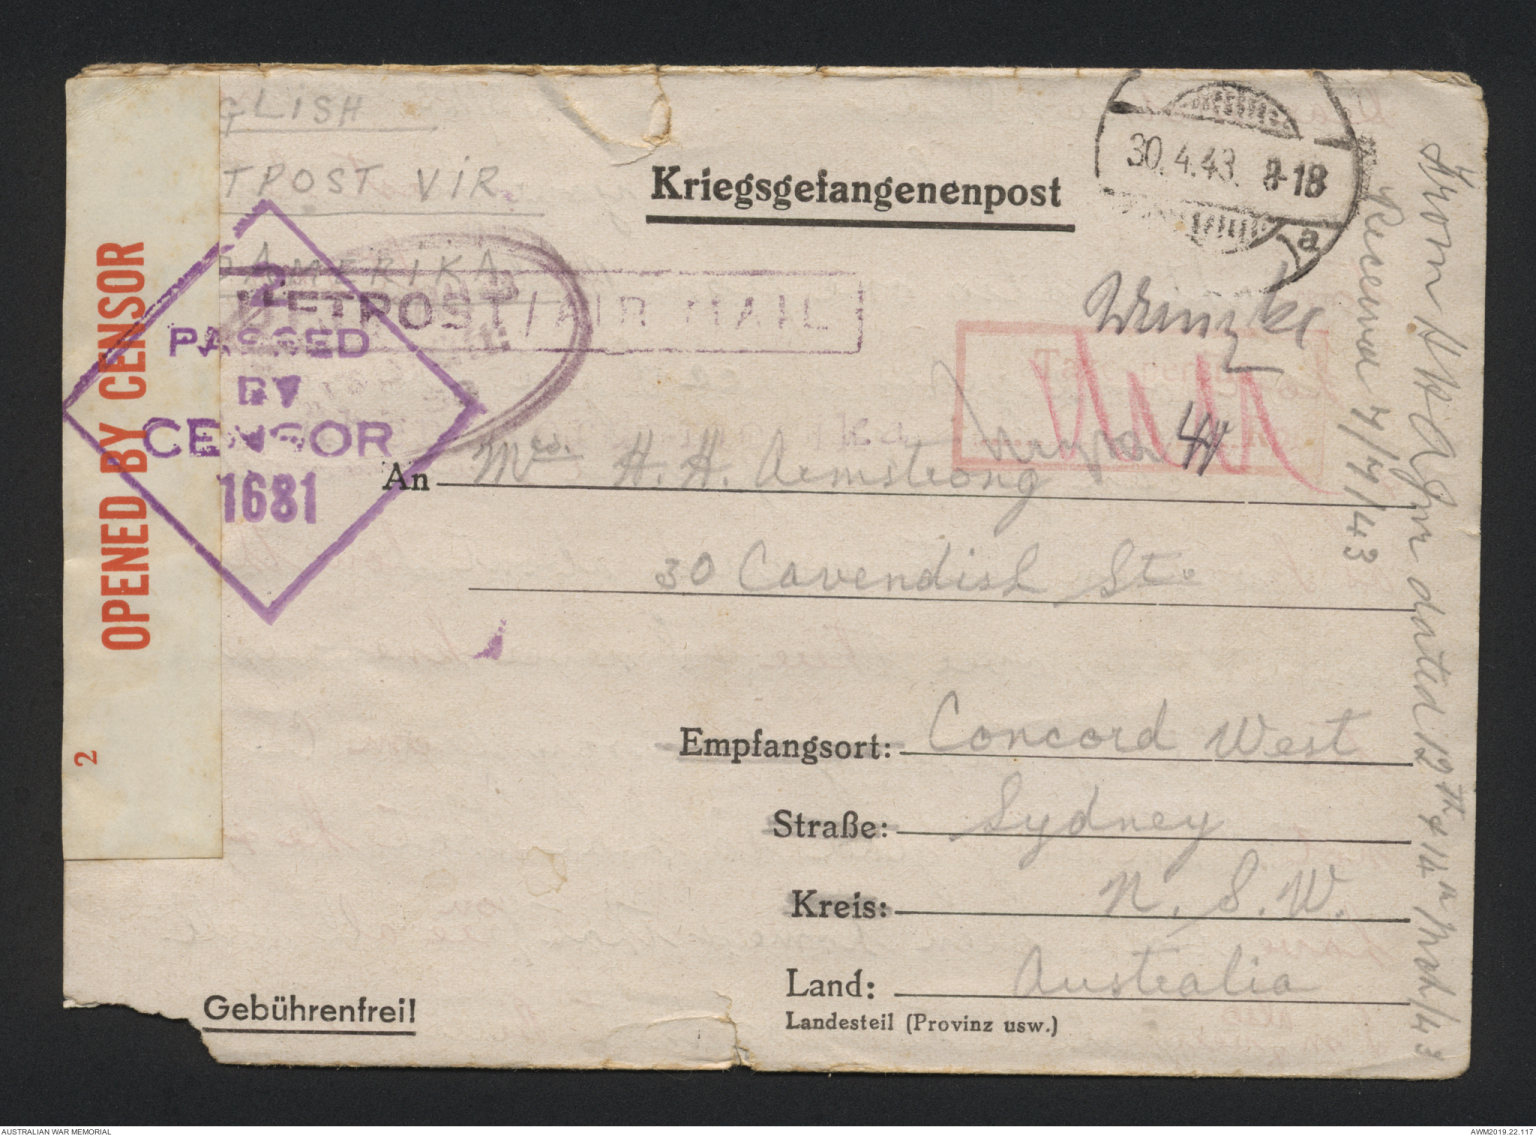 GLISH
TPOST VIR.
AMERIKA
Kriegsgefangenenpost
30.4.43. 8-18
a
LUFTPOST/AIR MAIL
2
PASSED
BY
CENSOR
1681
OPENED BY CENSOR
2
An Mrs. H. H. Armstrong
30 Cavendish St.
Empfangsort: Concord West
Straße: Sydney
Kreis: N. S. W.
Land: Australia
Landesteil (Provinz usw.)
Gebührenfrei!
44
From dated 12th & 14th March/43
Received 7/7/43
AUSTRALIAN WAR MEMORIAL
AWM2019.22.117